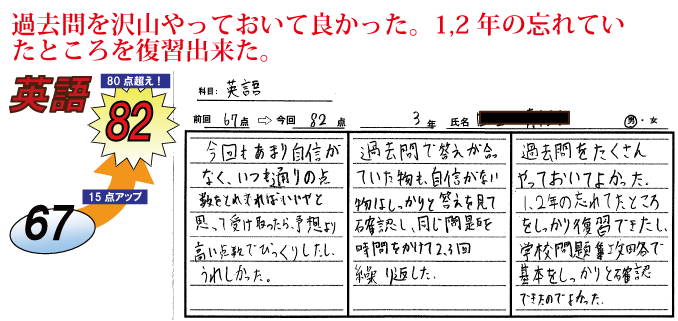 過去問を沢山やっておいて良かった。1,2年の忘れてい
たところを復習出来た。
英語
80点超え！
82
15点アップ
67
科目: 英語
前回 67点 ⇨ 今回 82 点 3 年 氏名 男・女
今回もあまり自信が
なく、いつも通りの点
数をとれればいいやと
思って受け取ったら、予想より
高い点数でびっくりしたし、
うれしかった。
過去問で答えが合っ
ていた物も、自信がない
物はしっかりと答えを見て
確認し、同じ問題を
時間をかけて2,3回
繰り返した。
過去問をたくさん
やっておいてよかった。
1、2年の忘れてたところ
をしっかり復習できたし、
学校問題集攻略で
基本をしっかりと確認
できたのでよかった。